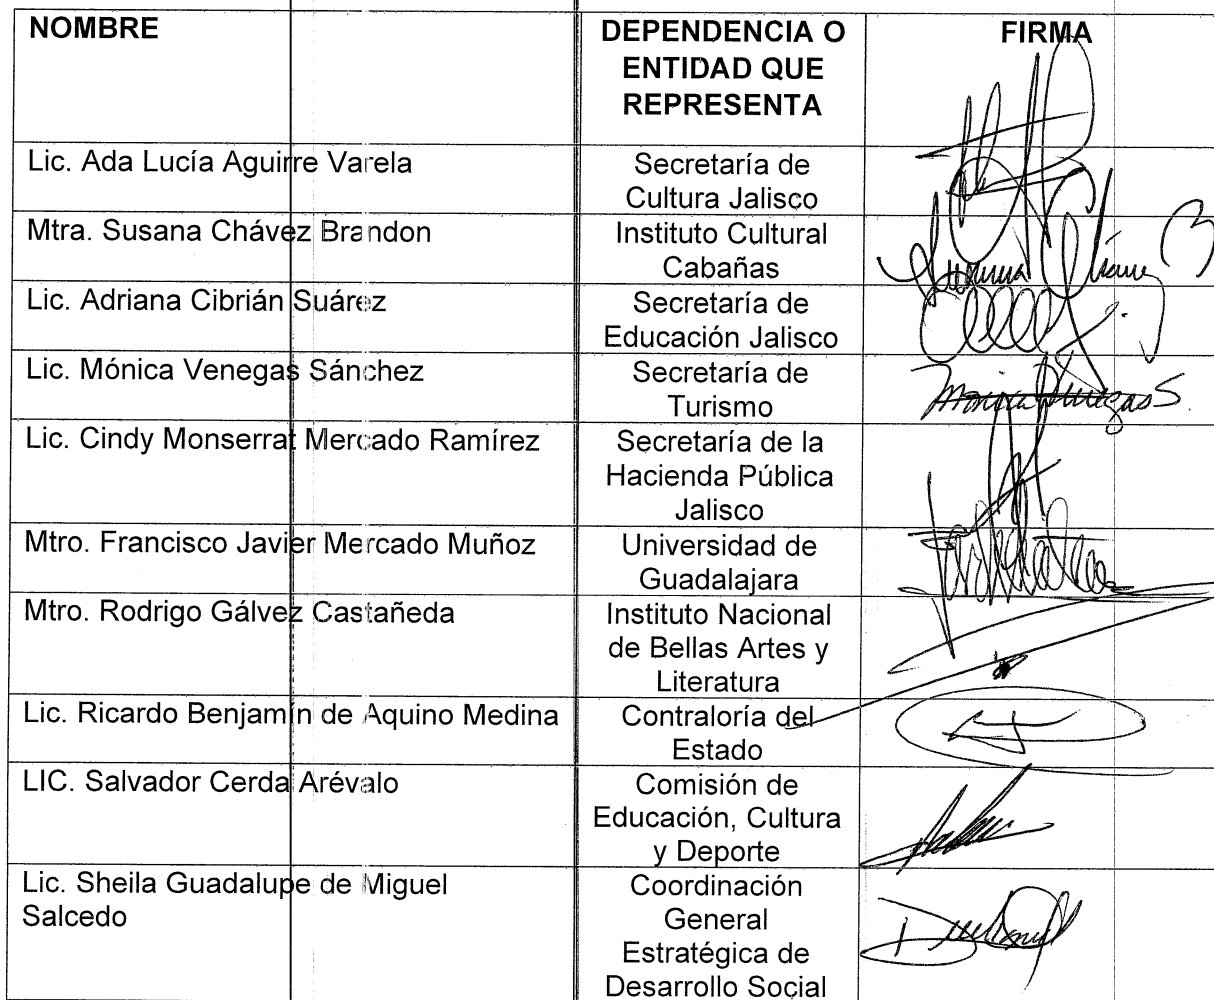 NOMBRE
DEPENDENCIA O
ENTIDAD QUE
REPRESENTA
FIRMA
Lic. Ada Lucía Aguirre Varela
Secretaría de
Cultura Jalisco
Mtra. Susana Chávez Brandon
Instituto Cultural
Cabañas
Lic. Adriana Cibrián Suárez
Secretaría de
Educación Jalisco
Lic. Mónica Venegas Sánchez
Secretaría de
Turismo
Mónica Venegas S.
Lic. Cindy Monserrat Mercado Ramírez
Secretaría de la
Hacienda Pública
Jalisco
Mtro. Francisco Javier Mercado Muñoz
Universidad de
Guadalajara
Mtro. Rodrigo Gálvez Castañeda
Instituto Nacional
de Bellas Artes y
Literatura
Lic. Ricardo Benjamín de Aquino Medina
Contraloría del
Estado
LIC. Salvador Cerda Arévalo
Comisión de
Educación, Cultura
y Deporte
Lic. Sheila Guadalupe de Miguel
Salcedo
Coordinación
General
Estratégica de
Desarrollo Social